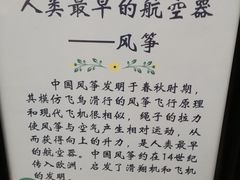 人类最早的航空器
——风筝
中国风筝发明于春秋时期，
其模仿飞鸟滑行的风筝飞行原理
和现代飞机很相似，绳子的拉力
使风筝与空气产生相对运动，从
而获得向上的升力，是人类最早
的航空器。中国风筝约在14世纪
传入欧洲，启发了滑翔机和飞机
的发明。